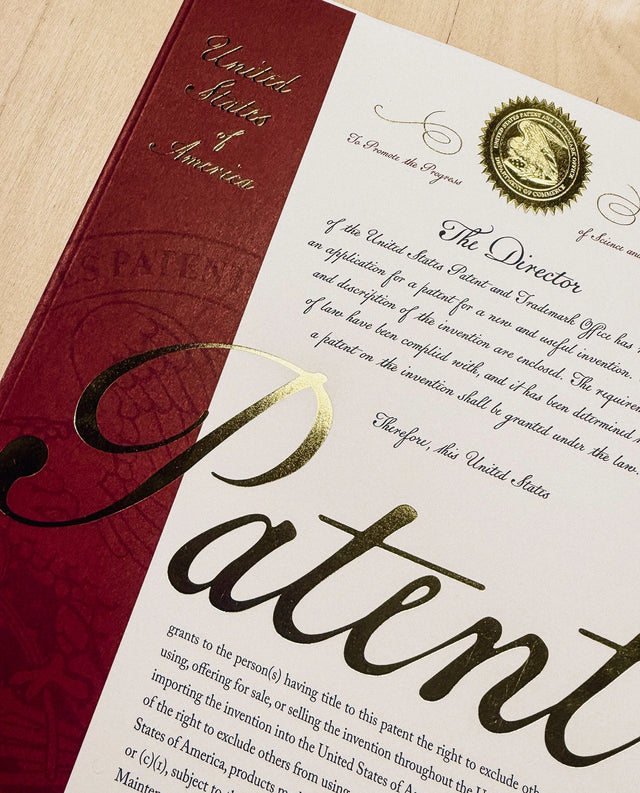 United
States
of
America
PATENT
To Promote the Progress
of Science and
UNITED STATES PATENT AND TRADEMARK OFFICE
DEPARTMENT OF COMMERCE
The Director
of the United States Patent and Trademark Office has
an application for a patent for a new and useful invention.
and description of the invention are enclosed. The
of law have been complied with, and it has been determined
a patent on the invention shall be granted under the law.
Therefore, this United States
Patent
grants to the person(s) having title to this patent the right to exclude
using, offering for sale, or selling the invention throughout the
importing the invention into the United States of
of the right to exclude others from using
States of America, products
or (c)(1), subject to